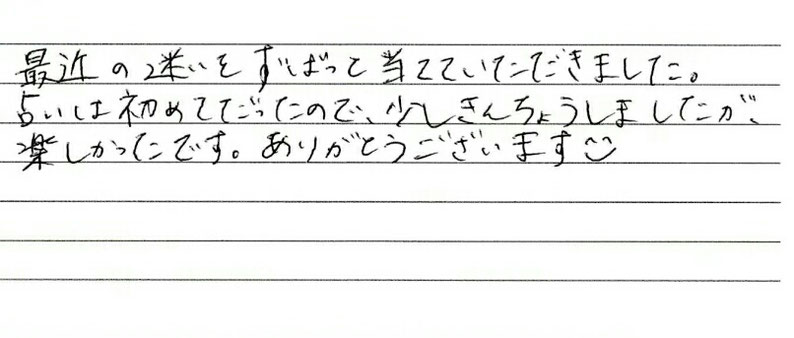 最近の迷いをずばっと当てていただきました。
占いは初めてだったので、少しきんちょうしましたが、
楽しかったです。ありがとうございます☺